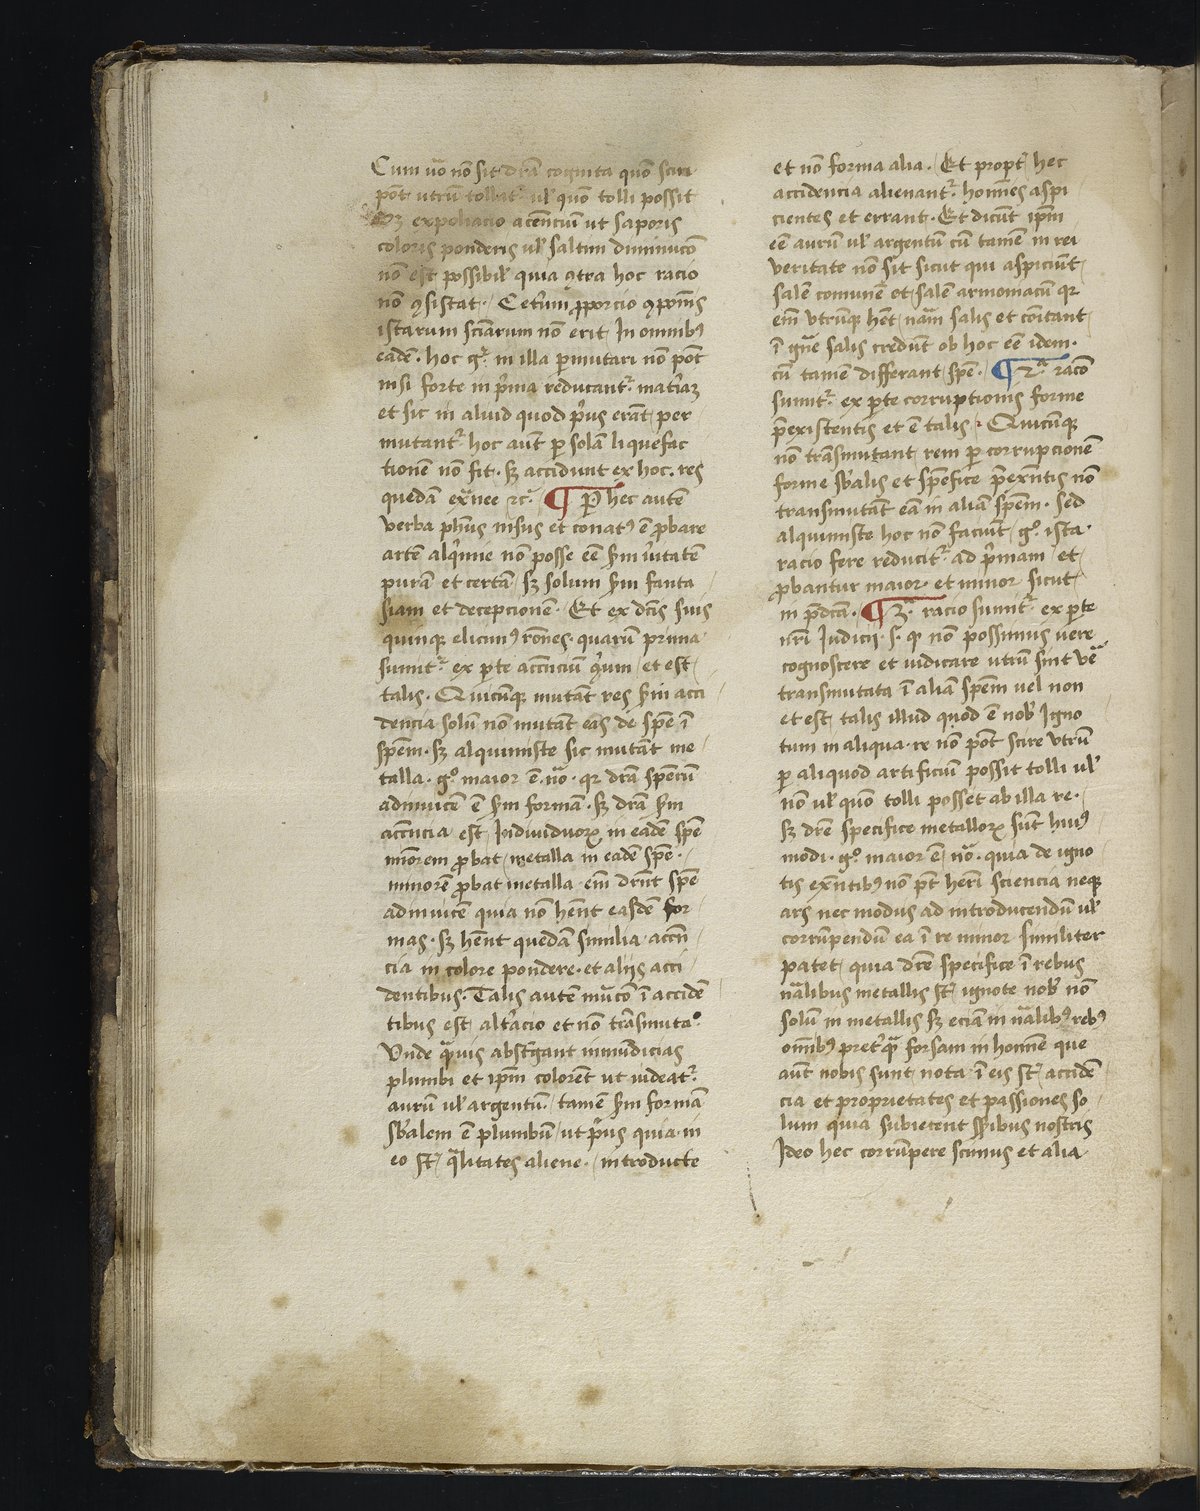 Cum ūo nō sit dr̄a cognita quō sciri
pōt utrū tollat᷑ ul̄ quō tolli possit
Sꝫ expoliacio accēnciū ut saporis
coloris ponderis ul̄ saltim diminucō
nō est possibil̄ quia ꝯtra hoc racio
nō ꝯsistat. Cet̄um ꝓporcio ꝯpōnis
istarum sciarum nō erit In omnibꝰ
eadē. hoc gͦ in illa ꝑmutari nō pōt
nisi forte in p̄ma reducant᷑ mat̄iaꝫ
et sic in aliud quod p̄us erāt per
mutant᷑ hoc aut̄ ꝑ solā liquefac
tionē nō fit. sꝫ accidunt ex hoc. res
quedā ex̄nee ⁊c̄. ¶ Pͬ hec autē
verba ph̄us nisus et conatꝰ ē ꝓbare
artē alq̄mie nō posse eē s̄m ūitatē
purā et certā sꝫ solum s̄m fanta
siam et decepcionē. Et ex dc̄is suis
quinqꝫ elicimꝰ rōnes. quarū prima
sumit᷑ ex ꝑte accn̄ciū q̄um et est
talis. Quicūqꝫ mutāt res s̄m acci
dencia solū nō mutāt eas de spē ī
spēm. sꝫ alquimiste sic mutāt me
talla. gͦ maior ē nō. qr dr̄a spērū
adinuicē ē s̄m formā. sꝫ dr̄a s̄m
accn̄cia est Indiuiduoꝝ in eadē spē
mīorem ꝓbat metalla in eadē spē.
minorē ꝓbat metalla em̄ dr̄nt spē
adinuicē quia nō hēnt easdē for
mas. sꝫ hēnt quedā similia accn̄
cia in colore pondere. et alijs acci
dentibus. Talis autē mūcō ī accidē
tibus est alt̄acio et nō trāsmutaͦ
Unde q̄uis absterḡant inmūdicias
plumbi et ip̄m colorēt ut uideat᷑
aurū ul̄ argentū. tamē s̄m formā
sb̄alem ē plumbū ut p̄us quia in
eo st̄ q̄litates aliene. introducte
et nō forma alia. Et propt̄ hec
accidencia alienant᷑ homīes aspi
cientes et errant. Et dicūt ip̄m
eē aurū ul̄ argentū cū tamē in rei
veritate nō sit sicut qui aspiciūt
salē comunē et salē armoniacū qr
em̄ vtrūqꝫ hēt nām salis et cōitant
ī gn̄e salis credūt ob hoc eē idem.
cū tamē differant spē. ¶ 2ᵃ racō
sumit᷑ ex ꝑte corruptionis forme
p̄existentis et ē talis. Quicūqꝫ
nō trāsmutant rem ꝑ corrupcionē
forme sb̄alis et spēfice p̄exn̄tis nō
transmutāt eā in aliā spēm. Sed
alquimiste hoc nō faciūt gͦ ista
racio fere reducit᷑ ad p̄mam et
ꝓbantur maior et minor sicut
in p̄dcā. ¶ 3ᵃ racio sumit᷑ ex ꝑte
nr̄i Iudicij .s. qꝫ nō possimus uere
cognoscere et iudicare utrū sint ve᷑
transmutata ī aliā spēm uel non
et est talis illud quod ē nob̄ Igno
tum in aliqua re nō pōt scire vtrū
ꝑ aliquod artificiū possit tolli ul̄
nō ul̄ quō tolli posset ab illa re.
sꝫ dr̄ē specifice metalloꝝ sūt huiꝰ
modi. gͦ maior ē nō. quia de igno
tis exn̄tibꝰ nō pt̄ heri sciencia neqꝫ
ars nec modus ad introducendū ul̄
corrūpendū ea ī re minor similiter
patet quia dr̄ē specifice ī rebus
nālibus metallis st̄ ignote nob̄ nō
solū in metallis sꝫ eciā in nālibꝰ rebꝰ
om̄ibꝰ pret̄q̄ forsam in homīe que
aūt nobis sunt nota ī eis st̄ accidē
cia et proprietates et passiones so
lum quia subiecent ss̄ibus nostris
Ideo hec corrūpere scimus et alia